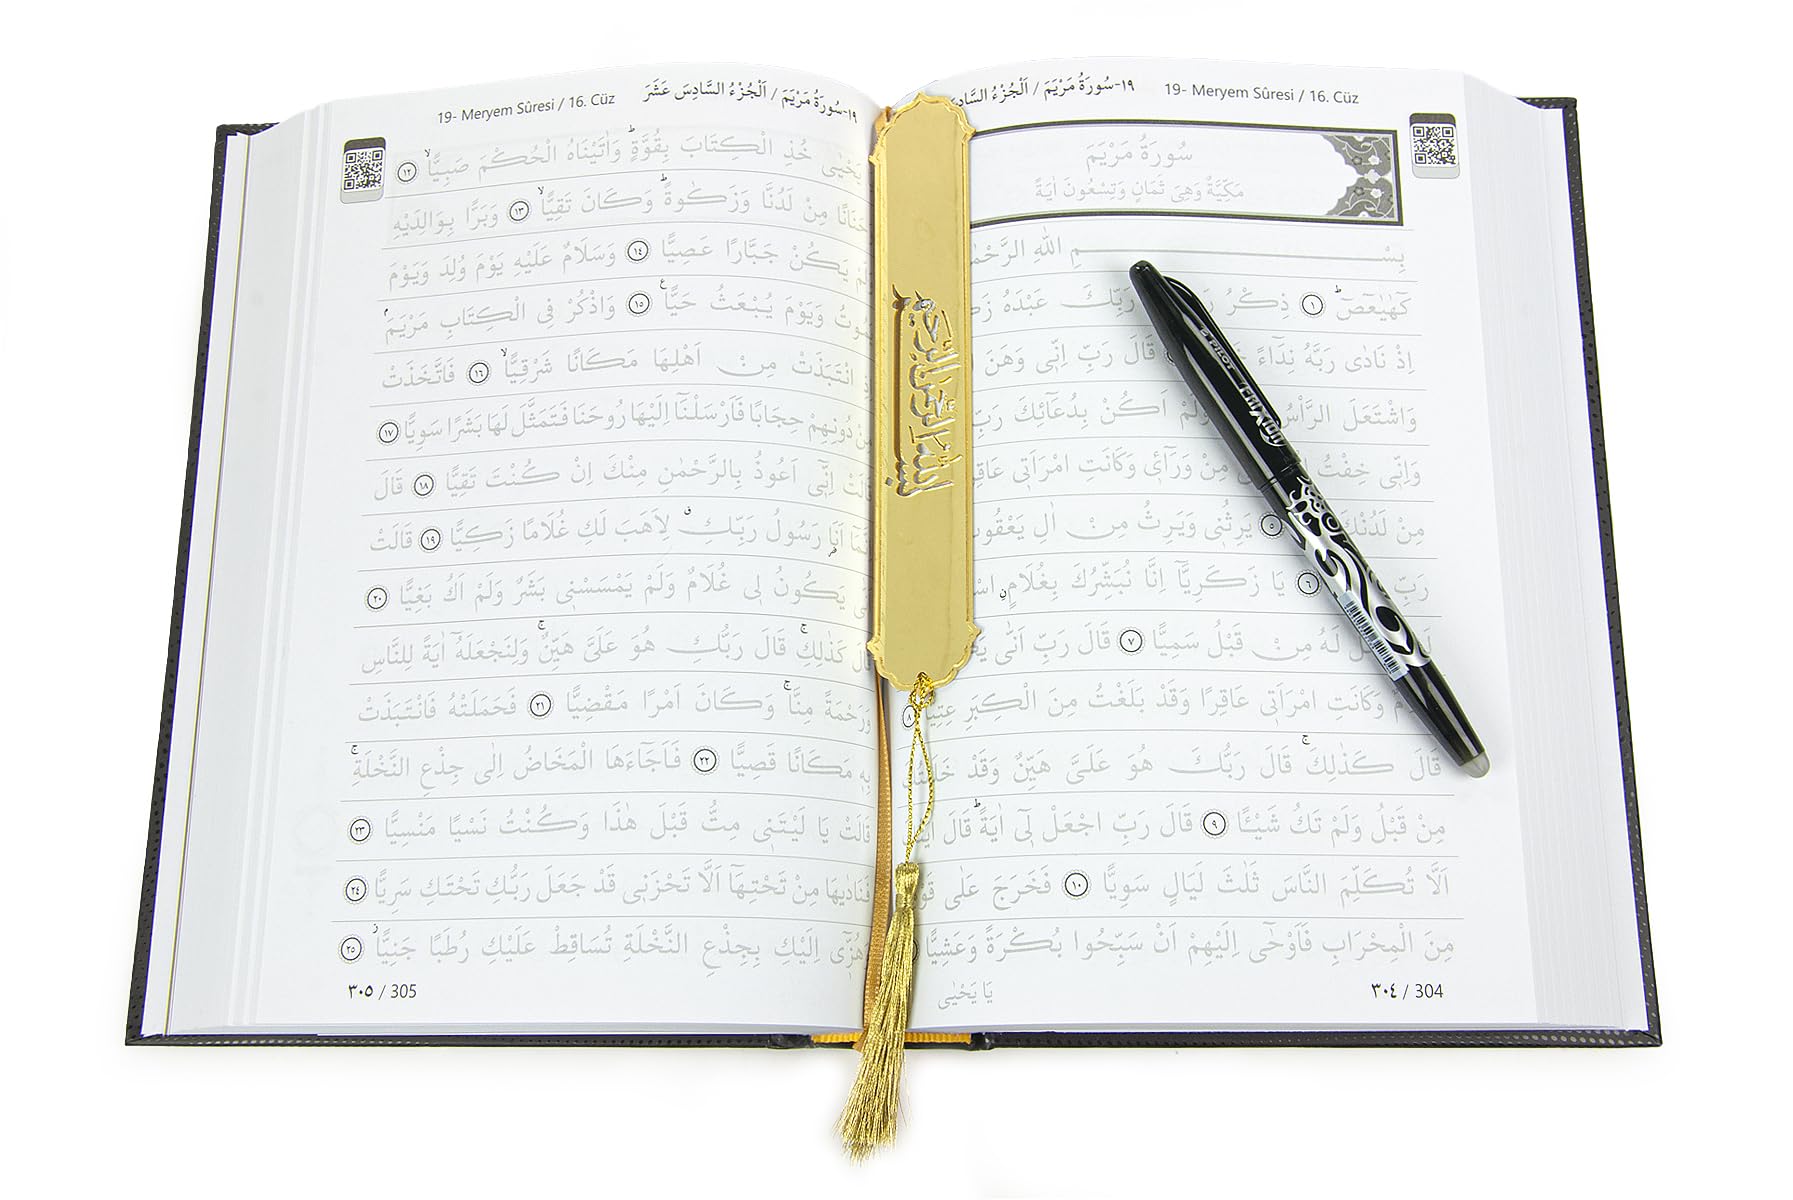 ١٩-سُورَةُ مَرْيَمَ / اَلْجُزْءُ 19- Meryem Sûresi / 16. Cüz
سُورَةُ مَرْيَمَ
مَكِّيَّةٌ وَهِىَ ثَمَانٍ وَتِسْعُونَ اٰيَةً
بِسْــــــــــمِ اللّٰهِ
كٓهٰيٰعٓصٓ ۜ ﴿١﴾ ذِكْرُ رَبِّكَ عَبْدَهُ
اِذْ نَادٰى رَبَّهُ نِدَٓاءً قَالَ رَبِّ اِنّٖى وَهَنَ
وَاشْتَعَلَ الرَّأْسُ وَلَمْ اَكُنْ بِدُعَٓائِكَ رَبِّ
وَاِنّٖى خِفْتُ مِنْ وَرَٓاءٖى وَكَانَتِ امْرَاَتٖى
مِنْ لَدُنْكَ ﴿٥﴾ يَرِثُنٖى وَيَرِثُ مِنْ اٰلِ يَعْقُوبَ
رَبِّ ﴿٦﴾ يَا زَكَرِيَّٓا اِنَّا نُبَشِّرُكَ بِغُلَامٍ
لَهُ مِنْ قَبْلُ سَمِيًّا ﴿٧﴾ قَالَ رَبِّ اَنّٰى
وَكَانَتِ امْرَاَتٖى عَاقِرًا وَقَدْ بَلَغْتُ مِنَ الْكِبَرِ عِتِيًّا ﴿٨﴾
قَالَ كَذٰلِكَۚ قَالَ رَبُّكَ هُوَ عَلَىَّ هَيِّنٌ وَقَدْ خَلَقْتُكَ
مِنْ قَبْلُ وَلَمْ تَكُ شَيْـًٔا ﴿٩﴾ قَالَ رَبِّ اجْعَلْ لٖٓى اٰيَةًۜ قَالَ
اَلَّا تُكَلِّمَ النَّاسَ ثَلٰثَ لَيَالٍ سَوِيًّا ﴿١٠﴾ فَخَرَجَ عَلٰى
مِنَ الْمِحْرَابِ فَاَوْحٰٓى اِلَيْهِمْ اَنْ سَبِّحُوا بُكْرَةً وَعَشِيًّا
يَا يَحْيٰى
٣٠٤ / 304
PILOT FRIXION
بسم الله الرحمن الرحيم
١٩-سُورَةُ مَرْيَمَ / اَلْجُزْءُ السَّادِسَ عَشَرَ 19- Meryem Sûresi / 16. Cüz
يَحْيٰى خُذِ الْكِتَابَ بِقُوَّةٍۜ وَاٰتَيْنَاهُ الْحُكْمَ صَبِيًّاۙ ﴿١٢﴾
حَنَانًا مِنْ لَدُنَّا وَزَكٰوةًۜ وَكَانَ تَقِيًّاۙ ﴿١٣﴾ وَبَرًّا بِوَالِدَيْهِ
يَكُنْ جَبَّارًا عَصِيًّا ﴿١٤﴾ وَسَلَامٌ عَلَيْهِ يَوْمَ وُلِدَ وَيَوْمَ
يَمُوتُ وَيَوْمَ يُبْعَثُ حَيًّاۧ ﴿١٥﴾ وَاذْكُرْ فِى الْكِتَابِ مَرْيَمَۢ
اِذِ انْتَبَذَتْ مِنْ اَهْلِهَا مَكَانًا شَرْقِيًّاۙ ﴿١٦﴾ فَاتَّخَذَتْ
مِنْ دُونِهِمْ حِجَابًا فَاَرْسَلْنَٓا اِلَيْهَا رُوحَنَا فَتَمَثَّلَ لَهَا بَشَرًا سَوِيًّا ﴿١٧﴾
قَالَتْ اِنّٖٓى اَعُوذُ بِالرَّحْمٰنِ مِنْكَ اِنْ كُنْتَ تَقِيًّا ﴿١٨﴾ قَالَ
اِنَّمَٓا اَنَا رَسُولُ رَبِّكِۗ لِاَهَبَ لَكِ غُلَامًا زَكِيًّا ﴿١٩﴾ قَالَتْ
يَكُونُ لٖى غُلَامٌ وَلَمْ يَمْسَسْنٖى بَشَرٌ وَلَمْ اَكُ بَغِيًّا ﴿٢٠﴾
قَالَ كَذٰلِكِۚ قَالَ رَبُّكِ هُوَ عَلَىَّ هَيِّنٌۚ وَلِنَجْعَلَهُٓ اٰيَةً لِلنَّاسِ
وَرَحْمَةً مِنَّاۚ وَكَانَ اَمْرًا مَقْضِيًّا ﴿٢١﴾ فَحَمَلَتْهُ فَانْتَبَذَتْ
بِهٖ مَكَانًا قَصِيًّا ﴿٢٢﴾ فَاَجَٓاءَهَا الْمَخَاضُ اِلٰى جِذْعِ النَّخْلَةِۚ
قَالَتْ يَا لَيْتَنٖى مِتُّ قَبْلَ هٰذَا وَكُنْتُ نَسْيًا مَنْسِيًّا ﴿٢٣﴾
فَنَادٰيهَا مِنْ تَحْتِهَٓا اَلَّا تَحْزَنٖى قَدْ جَعَلَ رَبُّكِ تَحْتَكِ سَرِيًّا ﴿٢٤﴾
وَهُزّٖٓى اِلَيْكِ بِجِذْعِ النَّخْلَةِ تُسَاقِطْ عَلَيْكِ رُطَبًا جَنِيًّاۘ ﴿٢٥﴾
٣٠٥ / 305